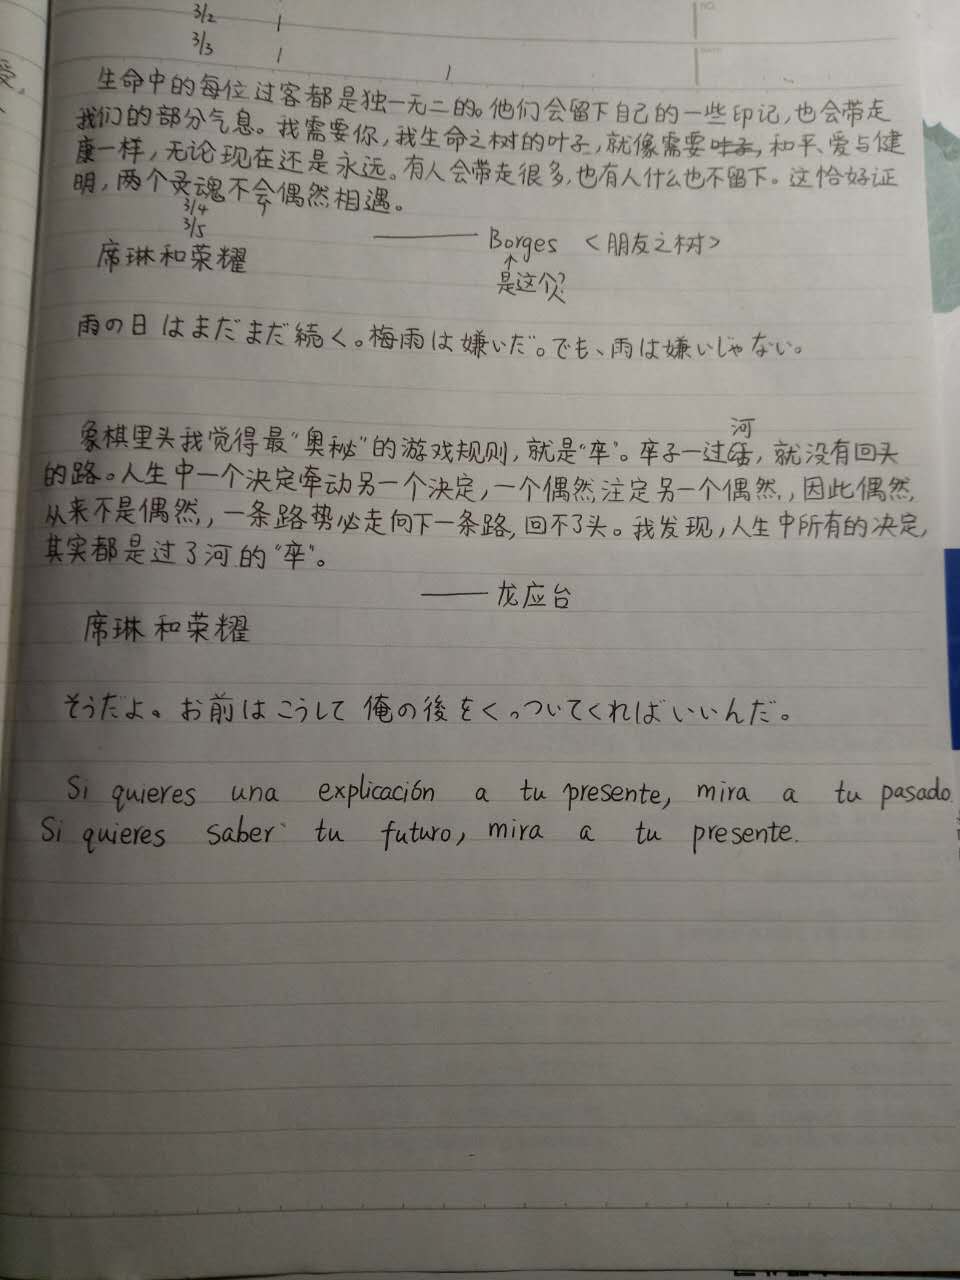 3/2
3/3
生命中的每位过客都是独一无二的。他们会留下自己的一些印记，也会带走
我们的部分气息。我需要你，我生命之树的叶子，就像需要和平、爱与健
康一样，无论现在还是永远。有人会带走很多，也有人什么也不留下。这恰好证
明，两个灵魂不会偶然相遇。
3/4
3/5
—— Borges <朋友之树>
席琳和荣耀
↑
是这个人?
雨の日はまだまだ続く。梅雨は嫌いだ。でも、雨は嫌いじゃない。
象棋里头我觉得最“奥秘”的游戏规则，就是“卒”。卒子一过河，就没有回头
的路。人生中一个决定牵动另一个决定，一个偶然注定另一个偶然，因此偶然
从来不是偶然，一条路势必走向下一条路，回不了头。我发现，人生中所有的决定，
其实都是过了河的“卒”。
—— 龙应台
席琳和荣耀
そうだよ。お前はこうして俺の後をくっついてくればいいんだ。
Si quieres una explicación a tu presente, mira a tu pasado.
Si quieres saber tu futuro, mira a tu presente.